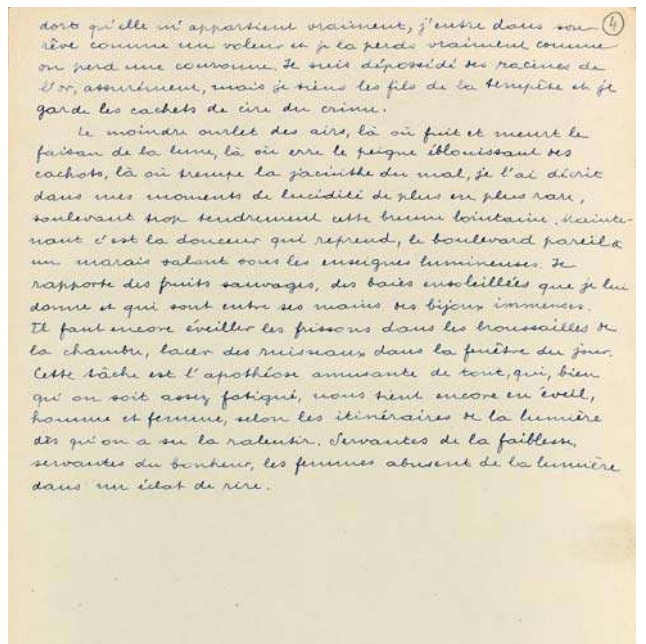 dort qu'elle m'appartient vraiment, j'entre dans son 4
rêve comme un voleur et je la perds vraiment comme
on perd une couronne. Je suis dépossédé des racines de
l'or, assurément, mais je tiens les fils de la tempête et je
garde les cachets de cire du crime.
Le moindre ourlet des airs, là où fuit et meurt le
faisan de la lune, là où erre le peigne éblouissant des
cachots, là où trempe la jacinthe du mal, je l'ai décrit
dans mes moments de lucidité de plus en plus rare,
soulevant trop tendrement cette brume lointaine. Mainte-
nant c'est la douceur qui reprend, le boulevard pareil à
un marais salant sous les enseignes lumineuses. Je
rapporte des fruits sauvages, des baies ensoleillées que je lui
donne et qui sont entre ses mains des bijoux immenses.
Il faut encore éveiller les frissons dans les broussailles de
la chambre, lacer des ruisseaux dans la fenêtre du jour.
Cette tâche est l'apothéose amusante de tout, qui, bien
qu'on soit assez fatigué, nous tient encore en éveil,
homme et femme, selon les itinéraires de la lumière
dès qu'on a su la ralentir. Servantes de la faiblesse,
servantes du bonheur, les femmes abusent de la lumière
dans un éclat de rire.